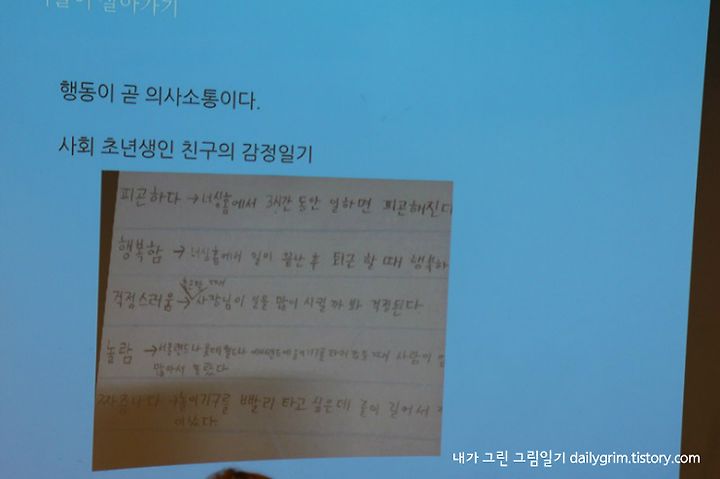 살아가기
행동이 곧 의사소통이다.
사회 초년생인 친구의 감정일기
피곤하다 → 너싱홈에서 3시간 동안 일하면 피곤해진다
행복함 → 너싱홈에서 일이 끝난 후 퇴근 할 때 행복하
출근할 때
걱정스러움 → 사장님이 일을 많이 시킬까 봐 걱정된다
놀람 → 서울랜드나 롯데월드나 놀이기구를 타러 갔을 때 사람이
많아서 놀랐다
짜증나다 놀이기구를 빨리 타고 싶은데 줄이 길어서
내가 그린 그림일기 dailygrim.tistory.com